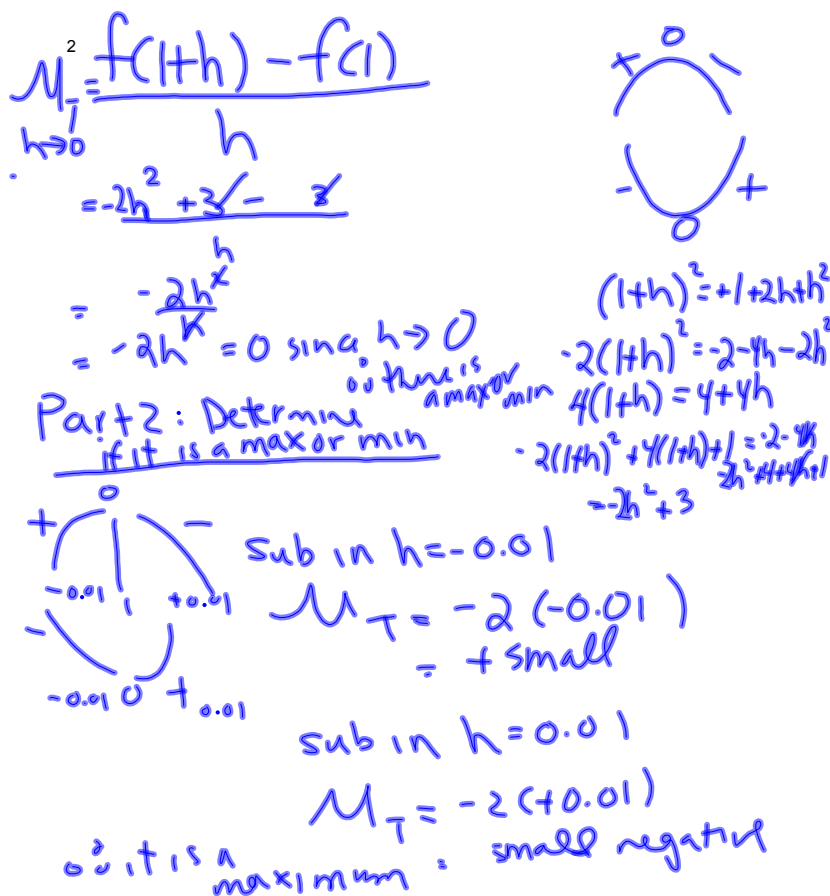 M_T = f(1+h) - f(1)
2
h→0
h
= -2h² + 3 - 3
h
= -2h²
h
= -2h = 0 since h → 0
∴ there is
a max or
min
Part 2: Determine
if it is a max or min
0
+ -
-0.01 1 +0.01
-
-0.01 0 + 0.01
Sub in h = -0.01
M_T = -2(-0.01)
= + small
sub in h = 0.01
M_T = -2(+0.01)
= small negative
∴ it is a
maximum
0
+ -
- +
0
(1+h)² = +1+2h+h²
-2(1+h)² = -2-4h-2h²
4(1+h) = 4+4h
-2(1+h)² + 4(1+h)+1 = -2-4h
-2h²+4+4h+1
= -2h²+3